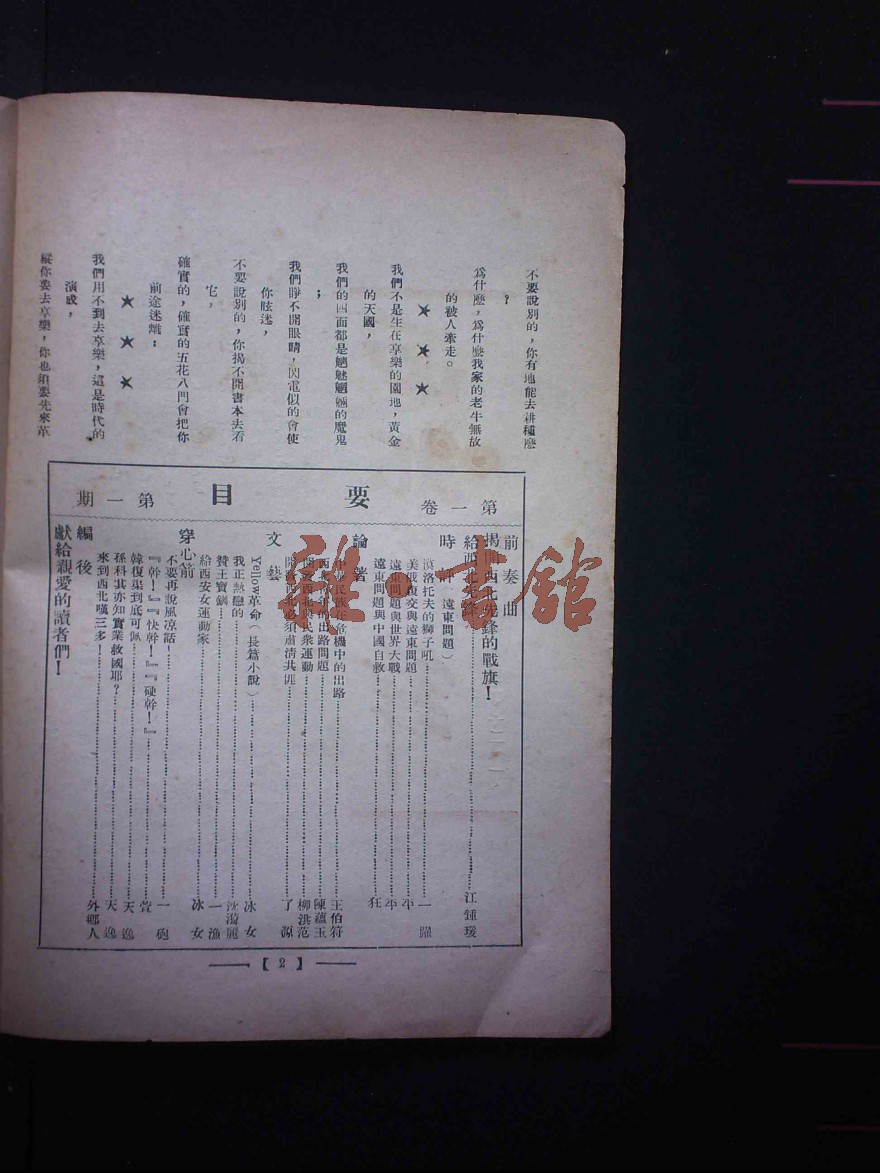 不要說別的，你有地能去耕種麼
？
爲什麼，爲什麼我家的老牛無故
的被人牽走。
★ ★ ★
我們不是生在享樂的園地，黃金
的天國，
我們的四面都是魑魅魍魎的魔鬼
；
我們睜不開眼睛，閃電似的會使
你眩迷，
不要說別的，你揭不開書本去看
它，
確實的，確實的五花八門會把你
前途迷熾：
★ ★ ★
我們用不到去享樂，這是時代的
演成，
縱你要去享樂，你也須要先來革
第一卷 要目 第一期
前奏曲
揭開西北先鋒的戰旗！
給西北先鋒 江鍾瑗
時評（遠東問題）
莫洛托夫的獅子吼 一鷗
美俄復交與遠東問題 平
遠東問題與世界大戰 平
遠東問題與中國自救 狂
論著
中華民族在危機中的出路 王伯符
西北青年的出路問題 陳蘊玉
開發西北與民衆運動 柳洪范
開發西北必須肅清共匪 了源
文藝
Yellow革命（長篇小說） 冰女
我正熱戀的 沈漪麗
贊王寶釧 一漁
給西安女運動家 冰女
穿心箭
不要再說風涼話！ 一砲
『幹！』『快幹！』『硬幹！』 萱
韓復榘到底可佩 天逸
孫科其亦知實業救國耶？ 天逸
來到西北嘆三多！ 外鄉人
編後
獻給親愛的讀者們！
【2】
雜·書館